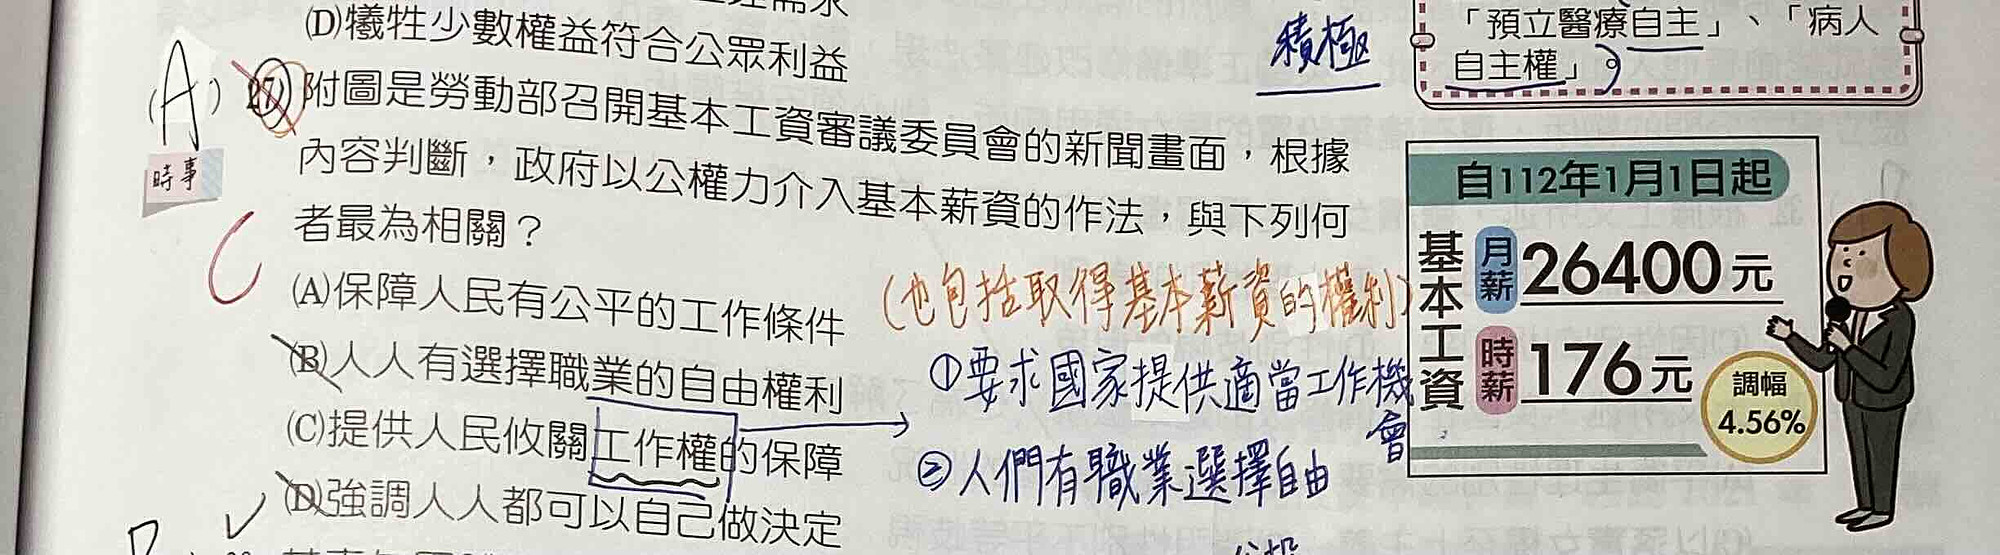 (D)犧牲少數權益符合公眾利益
積極
「預立醫療自主」、「病人
自主權」。
(A)
時事
27 附圖是勞動部召開基本工資審議委員會的新聞畫面，根據
內容判斷，政府以公權力介入基本薪資的作法，與下列何
者最為相關？
C
(A)保障人民有公平的工作條件
(B)人人有選擇職業的自由權利
(C)提供人民攸關工作權的保障
(D)強調人人都可以自己做決定
(也包括取得基本薪資的權利)
①要求國家提供適當工作機
會
②人們有職業選擇自由
自112年1月1日起
基本工資
月薪 26400元
時薪 176元
調幅
4.56%